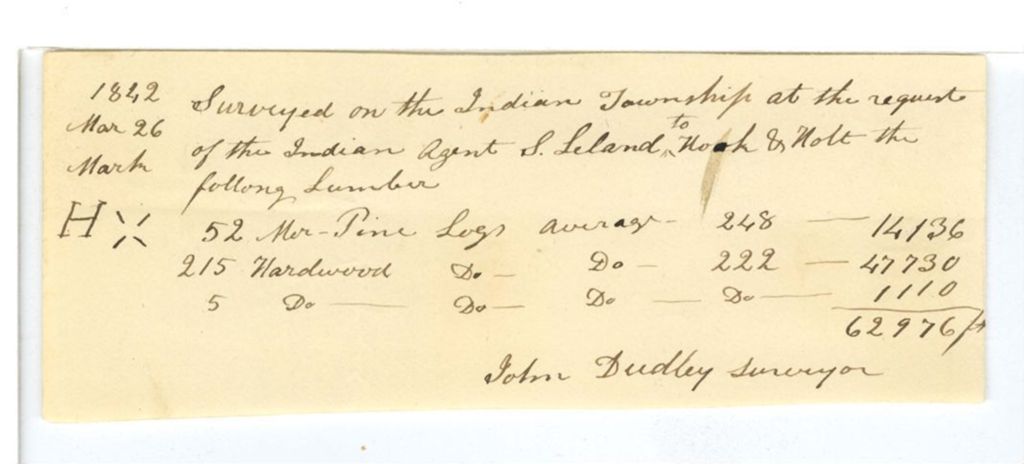 1842
Mar 26
Mark
H
Surveyed on the Indian Township at the request
of the Indian Agent S. Leland to & Holt the
follong Lumber
52 Mer-Pine Logs average - 248 — 14136
215 Hardwood Do - Do - 222 — 47730
5 Do — Do — Do — Do — 1110
62976 ft
John Dudley surveyor